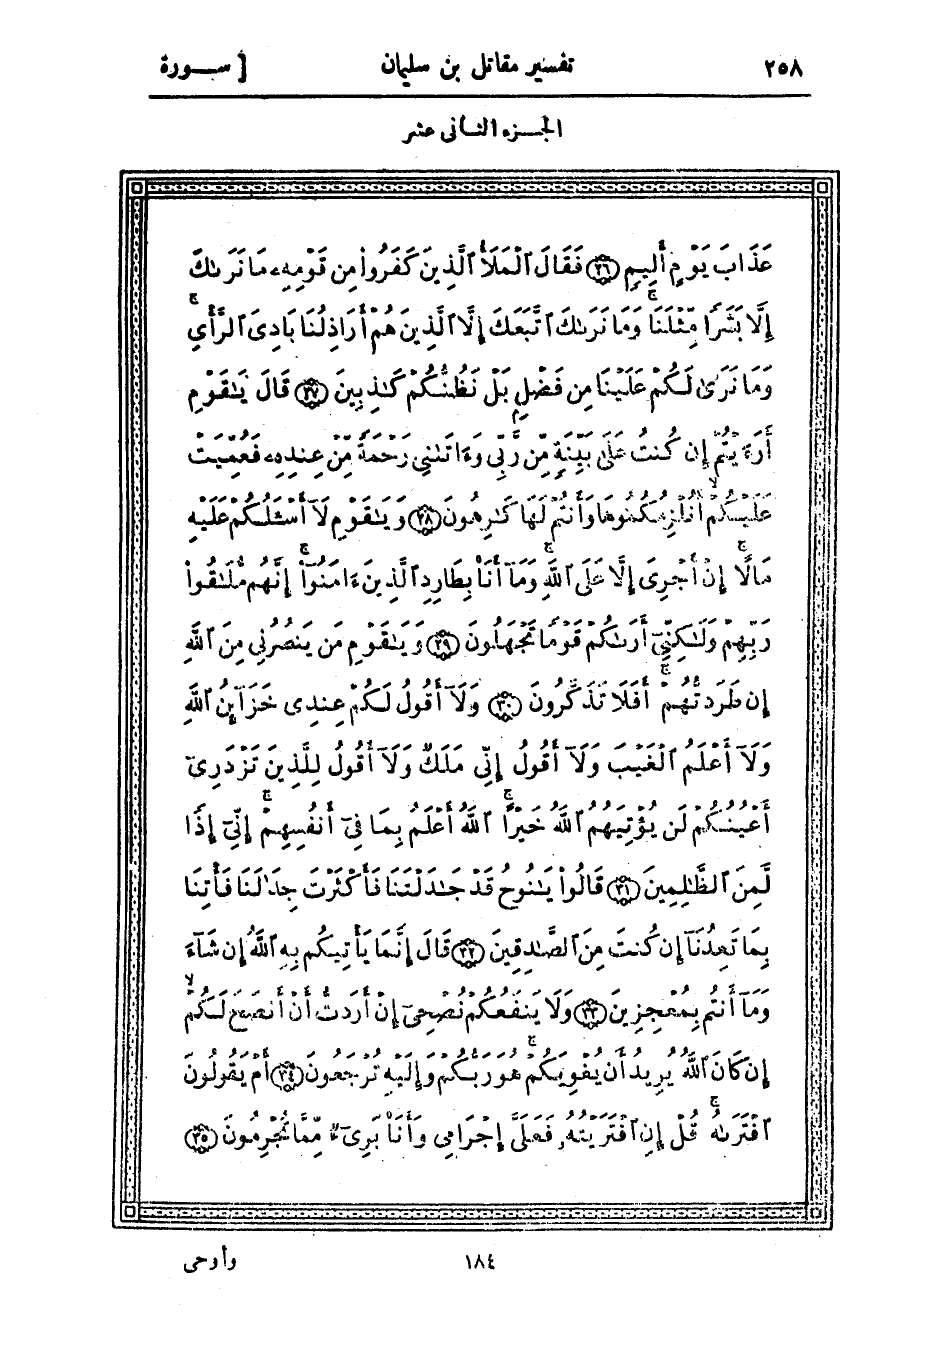 ٢٥٨ تفسير مقاتل بن سليمان [ سـورة
الجـزء الثـانى عشر
عَذَابَ يَوْمٍ أَلِيمٍ ۝٢٦ فَقَالَ ٱلْمَلَأُ ٱلَّذِينَ كَفَرُوا۟ مِن قَوْمِهِۦ مَا نَرَىٰكَ
إِلَّا بَشَرًا مِّثْلَنَا وَمَا نَرَىٰكَ ٱتَّبَعَكَ إِلَّا ٱلَّذِينَ هُمْ أَرَاذِلُنَا بَادِىَ ٱلرَّأْىِ
وَمَا نَرَىٰ لَكُمْ عَلَيْنَا مِن فَضْلٍۭ بَلْ نَظُنُّكُمْ كَـٰذِبِينَ ۝٢٧ قَالَ يَـٰقَوْمِ
أَرَءَيْتُمْ إِن كُنتُ عَلَىٰ بَيِّنَةٍ مِّن رَّبِّى وَءَاتَىٰنِى رَحْمَةً مِّنْ عِندِهِۦ فَعُمِّيَتْ
عَلَيْكُمْ أَنُلْزِمُكُمُوهَا وَأَنتُمْ لَهَا كَـٰرِهُونَ ۝٢٨ وَيَـٰقَوْمِ لَآ أَسْـَٔلُكُمْ عَلَيْهِ
مَالًا ۖ إِنْ أَجْرِىَ إِلَّا عَلَى ٱللَّهِ ۚ وَمَآ أَنَا۠ بِطَارِدِ ٱلَّذِينَ ءَامَنُوٓا۟ ۚ إِنَّهُم مُّلَـٰقُوا۟
رَبِّهِمْ وَلَـٰكِنِّىٓ أَرَىٰكُمْ قَوْمًا تَجْهَلُونَ ۝٢٩ وَيَـٰقَوْمِ مَن يَنصُرُنِى مِنَ ٱللَّهِ
إِن طَرَدتُّهُمْ ۚ أَفَلَا تَذَكَّرُونَ ۝٣٠ وَلَآ أَقُولُ لَكُمْ عِندِى خَزَآئِنُ ٱللَّهِ
وَلَآ أَعْلَمُ ٱلْغَيْبَ وَلَآ أَقُولُ إِنِّى مَلَكٌ وَلَآ أَقُولُ لِلَّذِينَ تَزْدَرِىٓ
أَعْيُنُكُمْ لَن يُؤْتِيَهُمُ ٱللَّهُ خَيْرًا ۖ ٱللَّهُ أَعْلَمُ بِمَا فِىٓ أَنفُسِهِمْ ۖ إِنِّىٓ إِذًا
لَّمِنَ ٱلظَّـٰلِمِينَ ۝٣١ قَالُوا۟ يَـٰنُوحُ قَدْ جَـٰدَلْتَنَا فَأَكْثَرْتَ جِدَٰلَنَا فَأْتِنَا
بِمَا تَعِدُنَآ إِن كُنتَ مِنَ ٱلصَّـٰدِقِينَ ۝٣٢ قَالَ إِنَّمَا يَأْتِيكُم بِهِ ٱللَّهُ إِن شَآءَ
وَمَآ أَنتُم بِمُعْجِزِينَ ۝٣٣ وَلَا يَنفَعُكُمْ نُصْحِىٓ إِنْ أَرَدتُّ أَنْ أَنصَحَ لَكُمْ
إِن كَانَ ٱللَّهُ يُرِيدُ أَن يُغْوِيَكُمْ ۚ هُوَ رَبُّكُمْ وَإِلَيْهِ تُرْجَعُونَ ۝٣٤ أَمْ يَقُولُونَ
ٱفْتَرَىٰهُ ۖ قُلْ إِنِ ٱفْتَرَيْتُهُۥ فَعَلَىَّ إِجْرَامِى وَأَنَا۠ بَرِىٓءٌ مِّمَّا تُجْرِمُونَ ۝٣٥
١٨٤ وأوحى